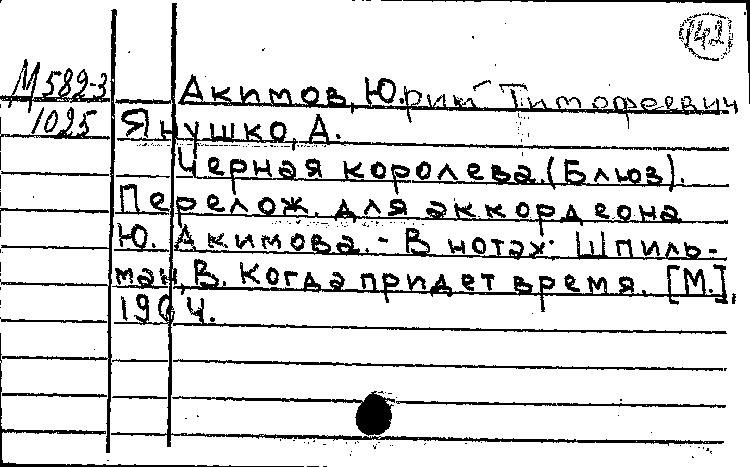 142
М 582-3
1025
Акимов, Юрий Тимофеевич
Янушко, А.
Черная королева. (Блюз).
Перелож. для аккордеона
Ю. Акимова. - В нотах: Шпиль-
ман, В. Когда придет время. [М.],
1964.